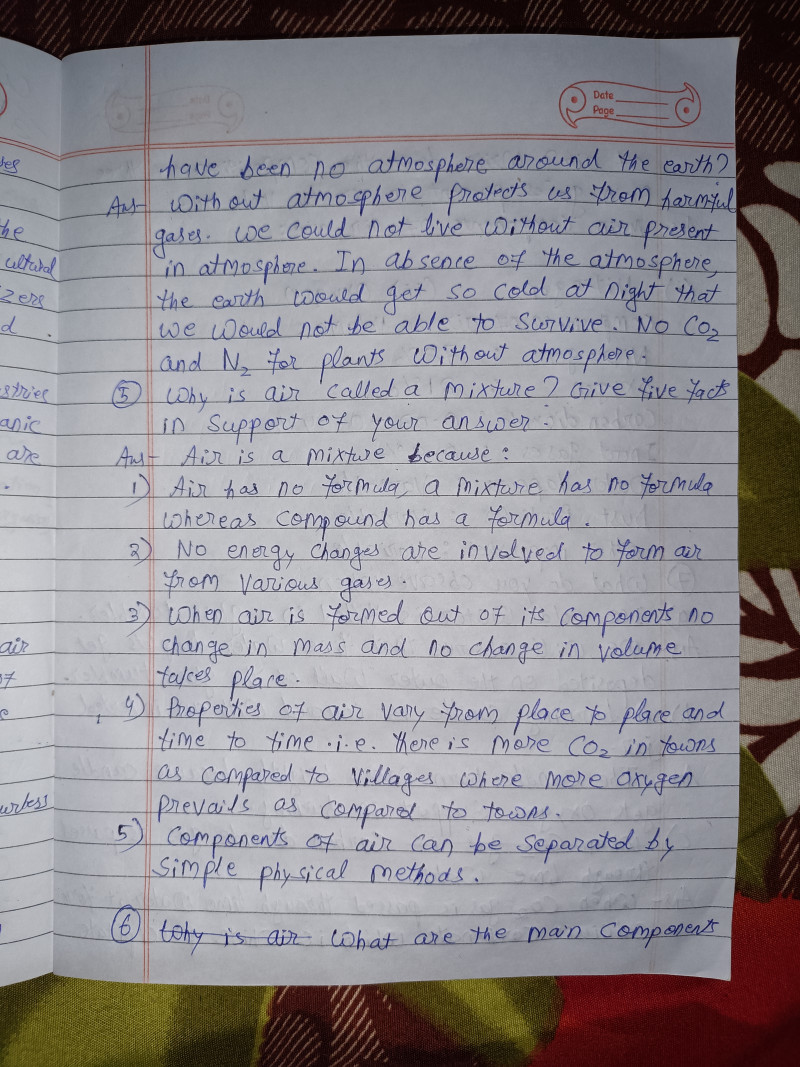 Date
Page
have been no atmosphere around the earth?
Ans- Without atmosphere protects us from harmful
gases. We could not live without air present
in atmosphere. In absence of the atmosphere,
the earth would get so cold at night that
we would not be able to survive. No CO2
and N2 for plants without atmosphere.
5 Why is air called a mixture? Give five facts
in support of your answer.
Ans- Air is a mixture because:
1) Air has no formula, a mixture has no formula
whereas compound has a formula.
2) No energy changes are involved to form air
from various gases.
3) When air is formed out of its components no
change in mass and no change in volume
takes place.
4) Properties of air vary from place to place and
time to time .i.e. there is more CO2 in towns
as compared to villages where more oxygen
prevails as compared to towns.
5) Components of air can be separated by
simple physical methods.
6 Why is air What are the main components
he
cultural
zers
d .
stries
anic
are
.
air
of
urless